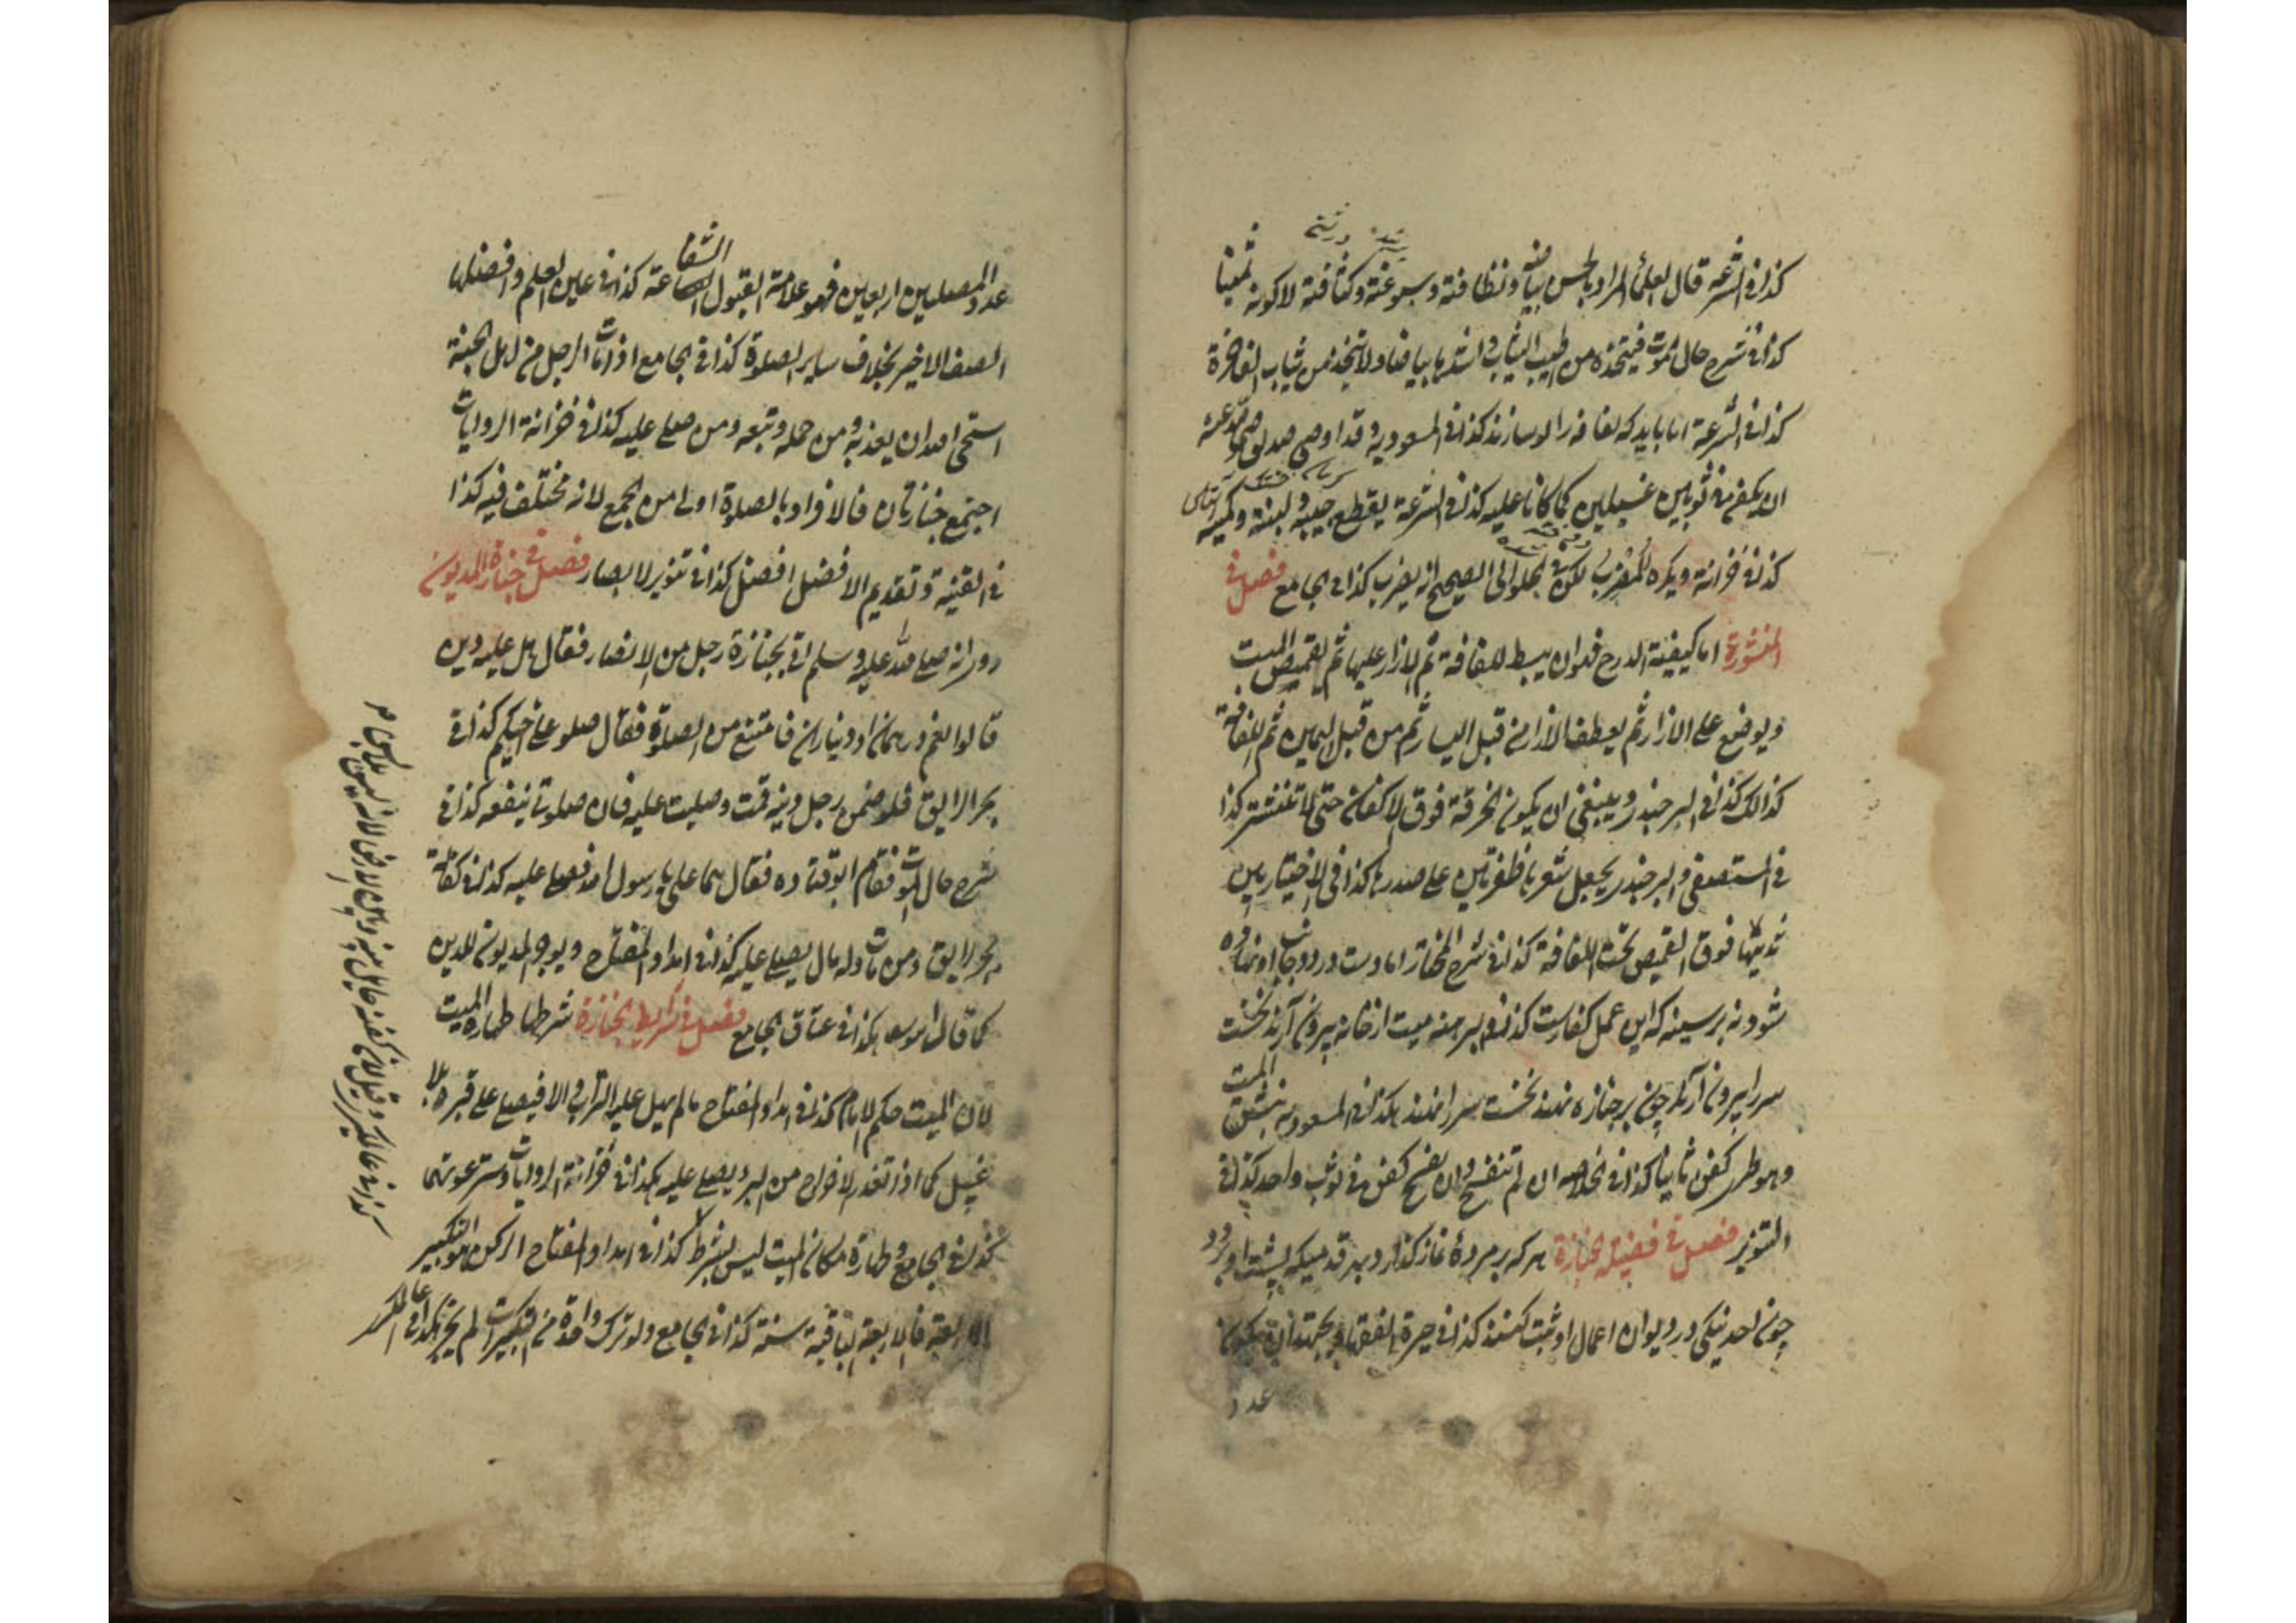 كذا فى الشرعة قال العلماء المراد بالحسن بياضه ونظافته وسبوغته وكثافته لا كونه ثمينا
كذا فى شرح حال الموت فيتخذه من اطيب الثياب واشدها بياضا ولا يتخذ من ثياب الفاخرة
كذا فى الشرعة اما بايد كه لفافه را سازند كذا فى المسعوديه وقد اوصى صديق رضى الله عنه
ان يكفن فى ثوبين غسيلين كما كانا عليه كذا فى الشرعة يقطع جيبه ولبنته وكميه
كذا فى خزانة ويكره المضرب لكن فى الحلوائى الصحيح انه يضرب كذا فى الجامع فصل فى
المنشورة اما كيفية الدرج فهو ان يبسط اللفافة ثم الازار عليها ثم القميص الميت
ويوضع على الازار ثم يعطف الازار من قبل اليسار ثم من قبل اليمين ثم اللفافة
كذالك كذا فى البرجندى وينبغى ان يكون الخرقة فوق الاكفان حتى لا تنتشر كذا
فى المستصفى والبرجندى يجعل شعرها ظفرتين على صدرها كذا فى الاختيار بين
ثدييها فوق القميص تحت اللفافة كذا فى شرح المختار اما دست در دو جانب او نهاده
شود نه بر سينه كه اين عمل كفارست كذا فى البرهنه ميت از خانه بيرون آرند نخست
سر را بيرون آرند چون بر جنازه نهند نخست سر را نهند هكذا فى المسعوديه نبش الميت
وهو طرى كفن ثانيا كذا فى الخلاصه ان لم تنفسخ وان تفسخ كفن فى ثوب واحد كذا فى
التنوير فصل فى فضيلة الجنازة هر كه بر مرده نماز كذارد بهر قدميكه پشت او برود
چون احد نيكى در ديوان اعمال او ثبت كنند كذا فى حيرة الفقهاء يجتهد ان يكون
عدد
عدد المصلين اربعين فهو علامة القبول الشفاعة كذا فى عين العلم وافضلها
الصف الاخير بخلاف ساير الصلوة كذا فى الجامع اذا مات الرجل من اهل الجنة
استحى الله ان يعذب به ومن حمله وتبعه ومن صلى عليه كذا فى خزانة الروايات
اجتمع جنازتان فالافراد بالصلوة اولى من الجمع لانه مختلف فيه كذا
فى القنية وتقديم الافضل افضل كذا فى تنوير الابصار فصل فى جنازة المديون
روى انه صلى الله عليه وسلم اتى بجنازة رجل من الانصار فقال هل عليه دين
قالوا نعم درهمان او ديناران فامتنع من الصلوة فقال صلوا على اخيكم كذا فى
بحر الرايق فلو ضمن رجل دينه قمت وصليت عليه فان صلوتى ينفعه كذا فى
شرح حال الموت فقام ابو قتاده فقال هما على يا رسول الله فصلى عليه كذا فى كفالة
بحر الرايق ومن مات وله مال يصلى عليه كذا فى امداد المفتاح ويوجر المديون للدين
كما قال ابو سعد هكذا فى عتاق الجامع فصل فى شرايط الجنازة شرطها طهارة الميت
لان الميت حكم الامام كذا فى امداد المفتاح ما لم يهل عليه التراب والا فيصلى على قبره بلا
غسل كما اذا تعذر الاخراج من البر ويصلى عليه هكذا فى خزانة الروايات وستر عورتها
كذا فى الجامع وطهارة مكان الميت ليس بشرط كذا فى امداد المفتاح الركن هو التكبير
الاربعة فالاربعة الباقية سنة كذا فى الجامع ولو ترك واحدة من التكبيرات لم يجز هكذا فى